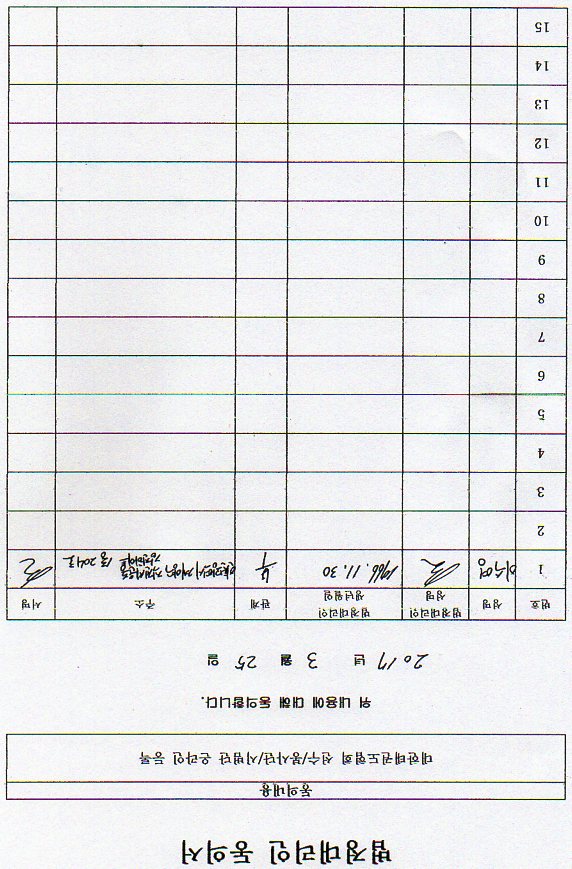 법정대리인 동의서
동의내용
대한태권도협회 선수/봉사단/시범단 온라인 등록
위 내용에 대해 동의합니다.
2017 년 3 월 25 일
번호 성명 법정대리인 성명 법정대리인 생년월일 관계 주소 서명
1 이수영 1966. 11. 30 부 1동 204호
2
3
4
5
6
7
8
9
10
11
12
13
14
15